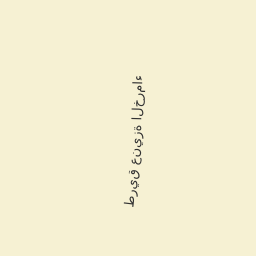 طريق عنيزة الخرماء